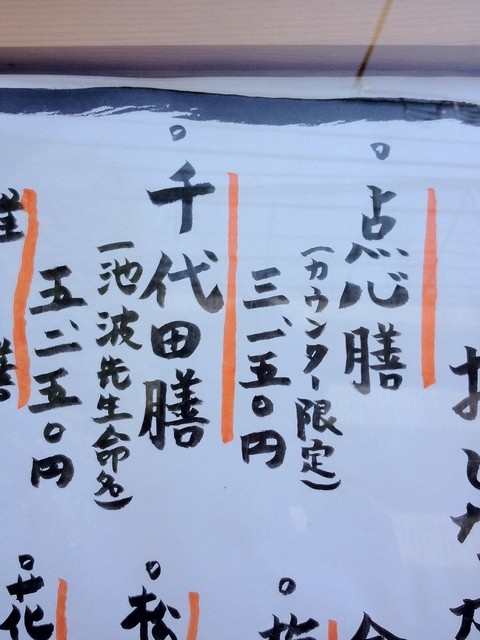 おしな
。点心膳
（カウンター限定）
三、一五〇円
。千代田膳
（池波先生命名）
五、二五〇円
。松
。花